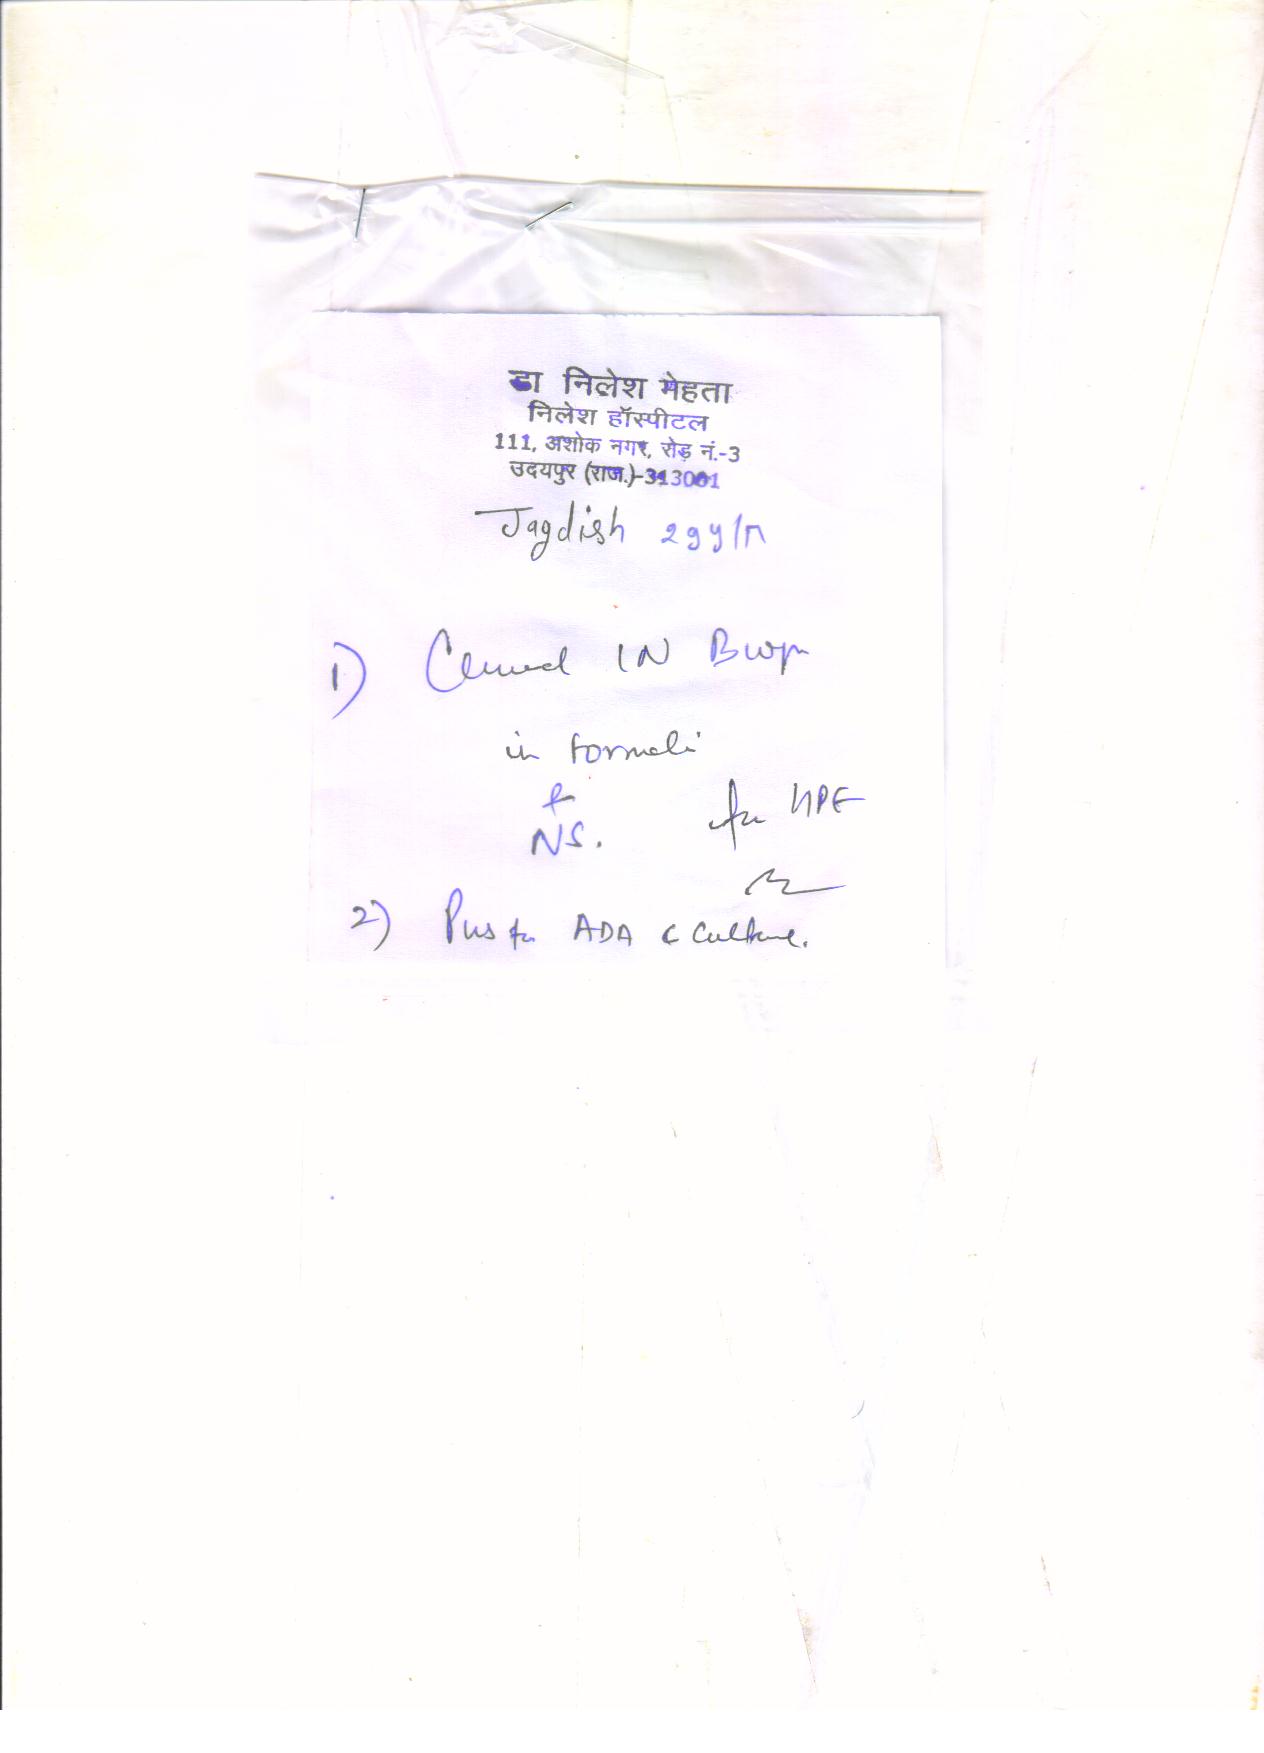 डा निलेश मेहता
निलेश हॉस्पीटल
111, अशोक नगर, रोड़ नं.-3
उदयपुर (राज.)-313001
Jagdish 29y/m
1) LN
in formali
&
NS. for HPE
2) Pus for ADA & Culture.